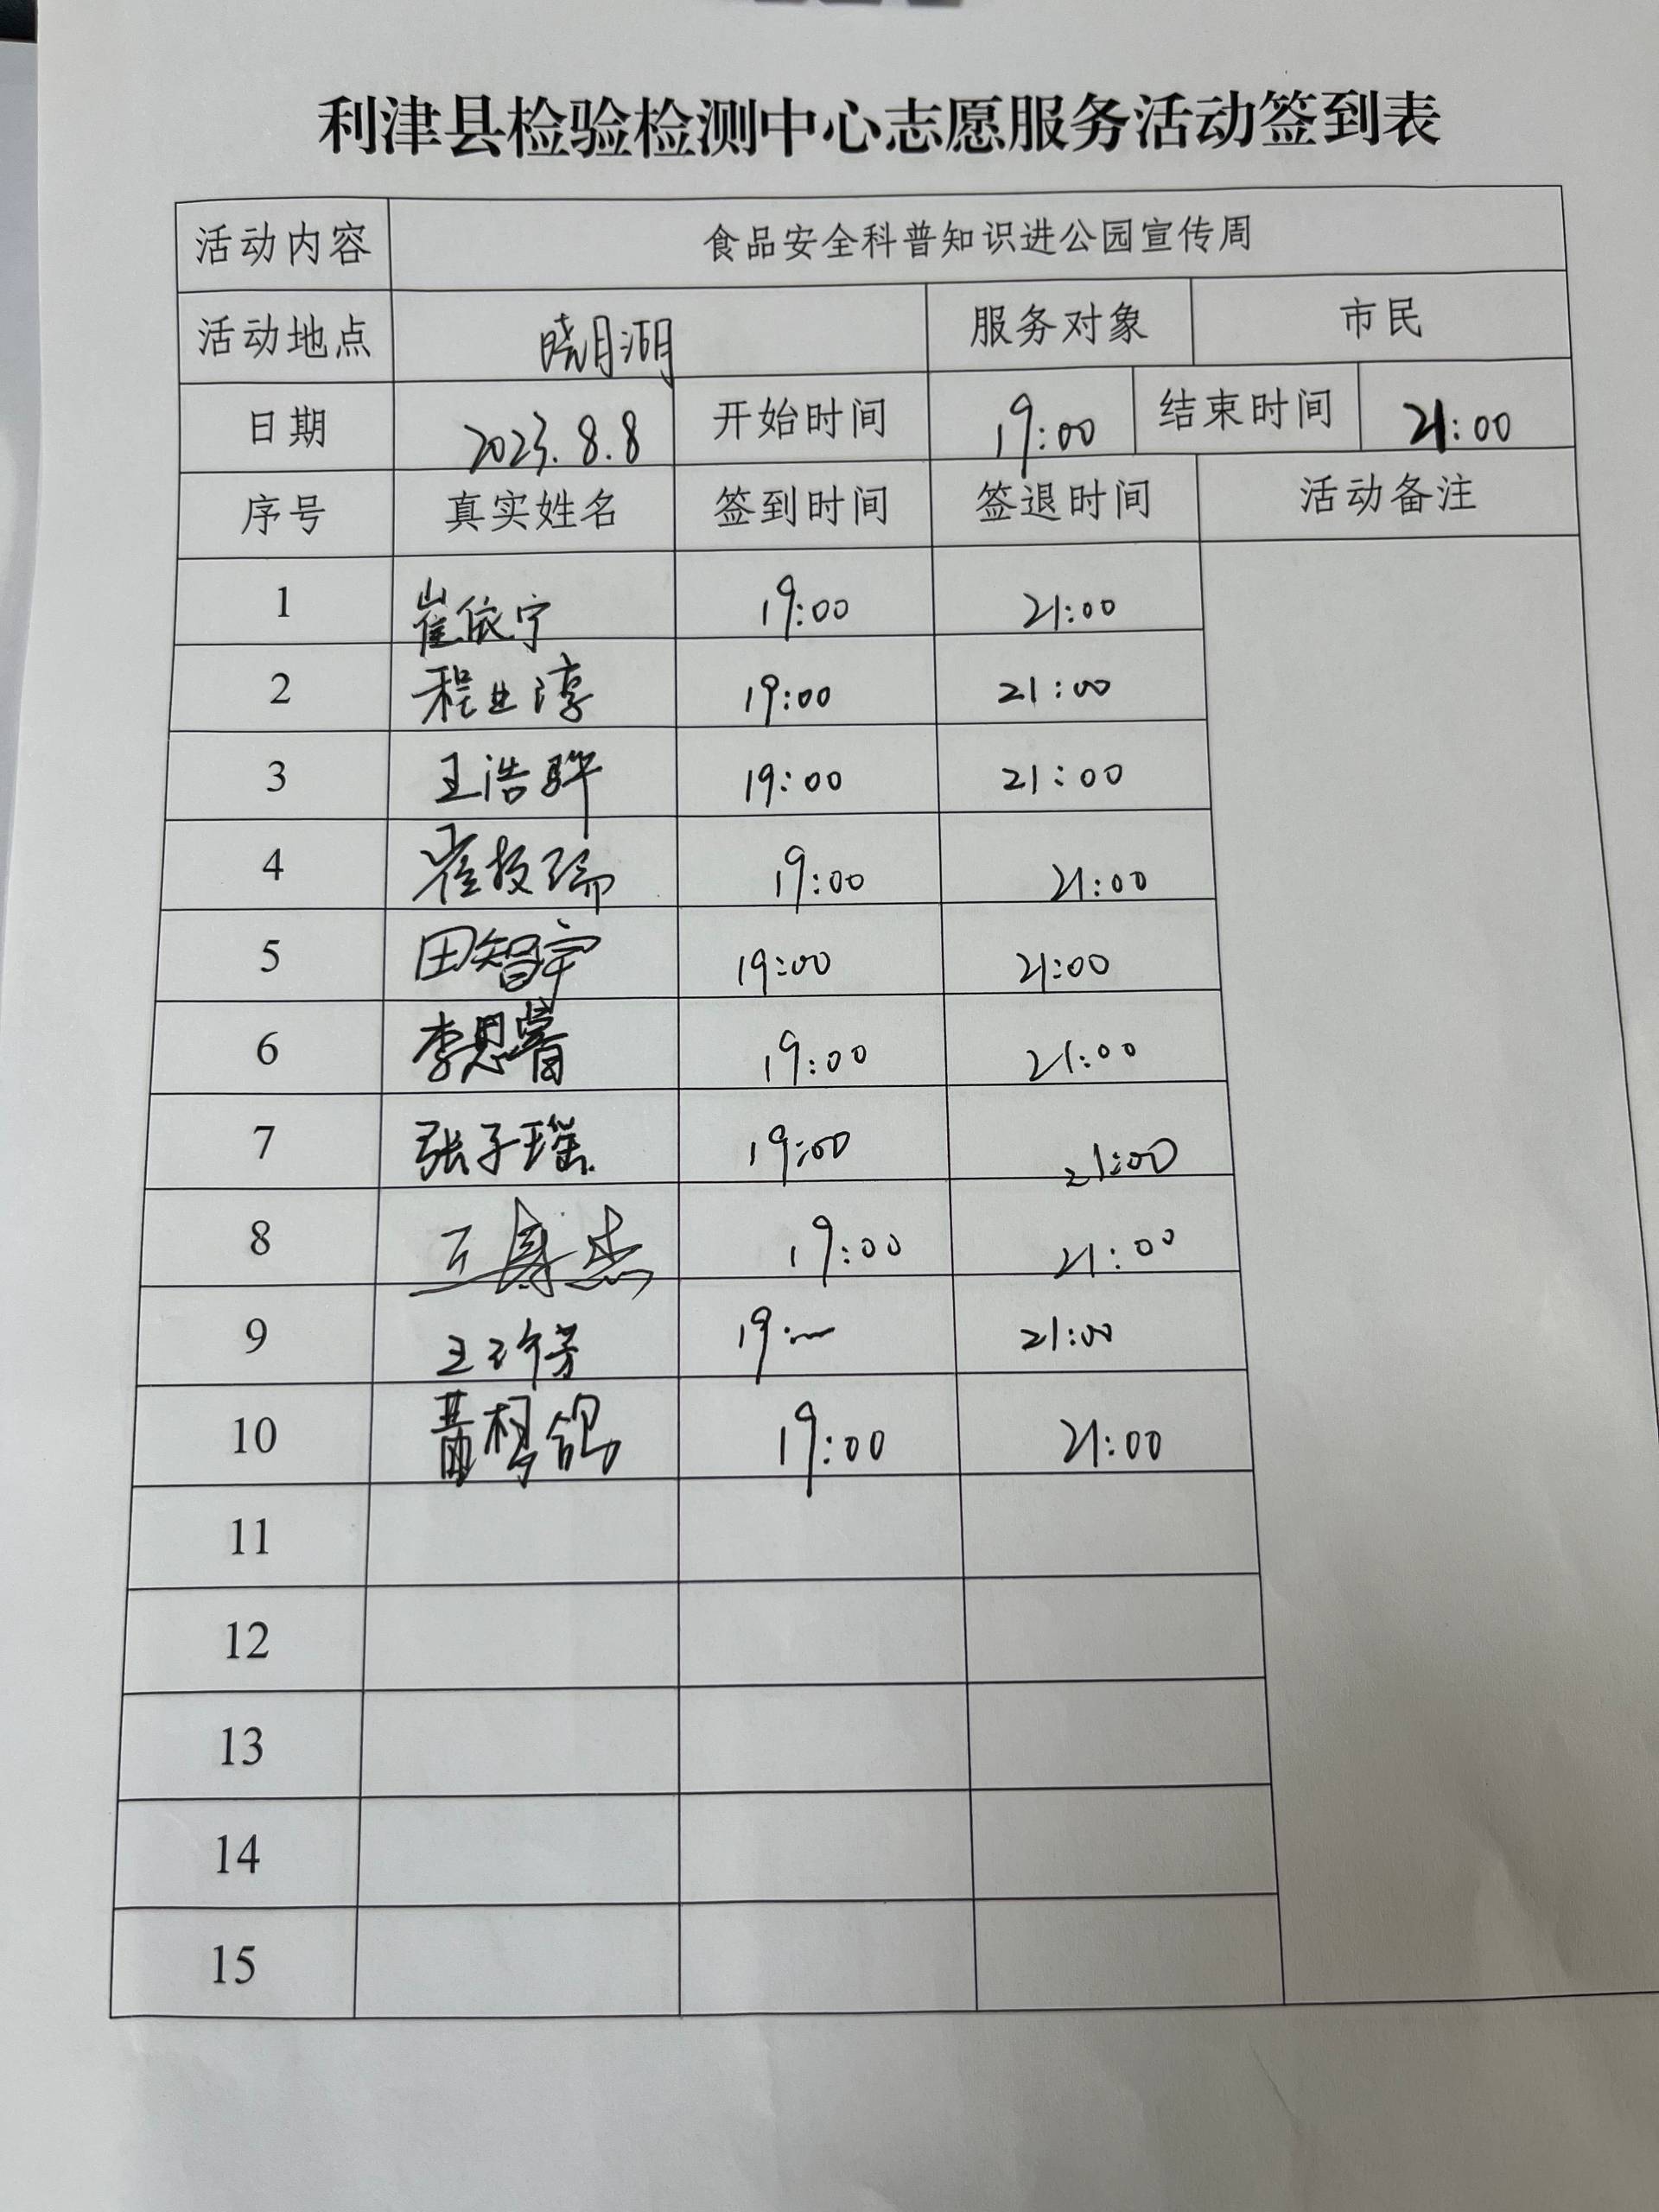 利津县检验检测中心志愿服务活动签到表
活动内容 食品安全科普知识进公园宣传周
活动地点 晓月湖 服务对象 市民
日期 2023.8.8 开始时间 19:00 结束时间 21:00
序号 真实姓名 签到时间 签退时间 活动备注
1 崔依宁 19:00 21:00
2 程业淳 19:00 21:00
3 王浩骅 19:00 21:00
4 崔技瑞 19:00 21:00
5 田智宇 19:00 21:00
6 李思 19:00 21:00
7 张子瑶 19:00 21:00
8 19:00 21:00
9 王 芳 19: 21:00
10 黄 鸽 19:00 21:00
11
12
13
14
15